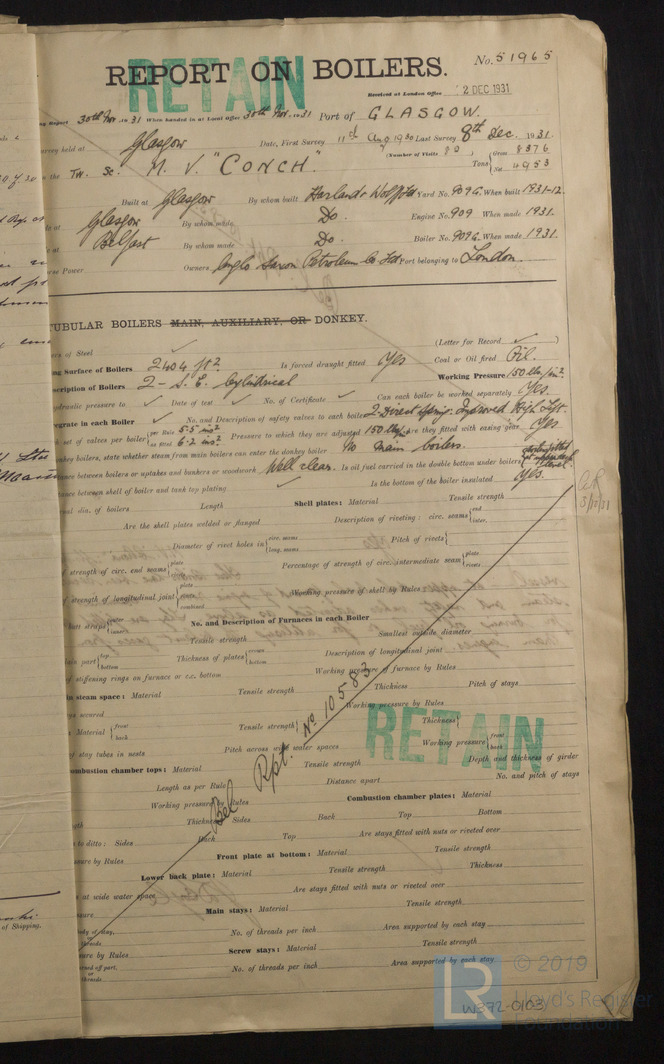 RETAIN
REPORT ON BOILERS.
No. 51965
Received at London Office 2 DEC 1931
Report 30th Nov. 1931 When handed in at Local Office 30th Nov. 1931 Port of GLASGOW.
held at Glasgow Date, First Survey 11th Aug 1930 Last Survey 8th Dec. 1931
(Number of Visits 80)
the Tw. Sc. M. V. "CONCH". Tons Gross 8376 Net 4953
Built at Glasgow By whom built Harland & Wolff Ltd Yard No. 909G. When built 1931-12.
Glasgow By whom made Do. Engine No. 909 When made 1931.
Belfast By whom made Do. Boiler No. 909G. When made 1931.
Power Owners Anglo Saxon Petroleum Co Ltd Port belonging to London.
TUBULAR BOILERS MAIN, AUXILIARY, OR DONKEY.
of Steel ✓ (Letter for Record ✓)
Surface of Boilers 2404 ft² Is forced draught fitted Yes Coal or Oil fired Oil.
Description of Boilers 2 - S. E. Cylindrical Working Pressure 150 lbs/in².
pressure to ✓ Date of test ✓ No. of Certificate ✓ Can each boiler be worked separately Yes.
grate in each Boiler ✓ No. and Description of safety valves to each boiler 2 Direct Spring. Improved High Lift.
set of valves per boiler per Rule 5.5 ins² as fitted 6.2 ins² Pressure to which they are adjusted 150 lbs/in² Are they fitted with easing gear Yes
donkey boilers, state whether steam from main boilers can enter the donkey boiler No main boilers.
between boilers or uptakes and bunkers or woodwork Well clear. Is oil fuel carried in the double bottom under boilers
between shell of boiler and tank top plating ✓ Is the bottom of the boiler insulated Yes.
dia. of boilers Length Shell plates: Material Tensile strength
Are the shell plates welded or flanged Description of riveting: circ. seams end inter.
Diameter of rivet holes in circ. seams long. seams Pitch of rivets
of strength of circ. end seams plate rivets Percentage of strength of circ. intermediate seam plate rivets
of strength of longitudinal joint plate rivets combined Working pressure of shell by Rules
butt straps No. and Description of Furnaces in each Boiler
Tensile strength Smallest outside diameter
plain part top bottom Thickness of plates crown bottom Description of longitudinal joint
of stiffening rings on furnace or c.c. bottom Working pressure of furnace by Rules
in steam space: Material Tensile strength Thickness Pitch of stays
secured Working pressure by Rules
Material front back Tensile strength Thickness
of stay tubes in nests Pitch across wide water spaces Working pressure front back
Combustion chamber tops: Material Tensile strength Depth and thickness of girder
Length as per Rule Distance apart No. and pitch of stays
Working pressure by Rules Combustion chamber plates: Material
Thickness Sides Back Top Bottom
to ditto: Sides Back Top Are stays fitted with nuts or riveted over
by Rules Front plate at bottom: Material Tensile strength
Lower back plate: Material Tensile strength Thickness
at wide water space Are stays fitted with nuts or riveted over
Main stays: Material Tensile strength
No. of threads per inch Area supported by each stay
by Rules Screw stays: Material Tensile strength
No. of threads per inch Area supported by each stay
Bel Rpt. No 10583
RETAIN
of Shipping.
LR © 2019
Lloyd's Register
Foundation
W372-0103